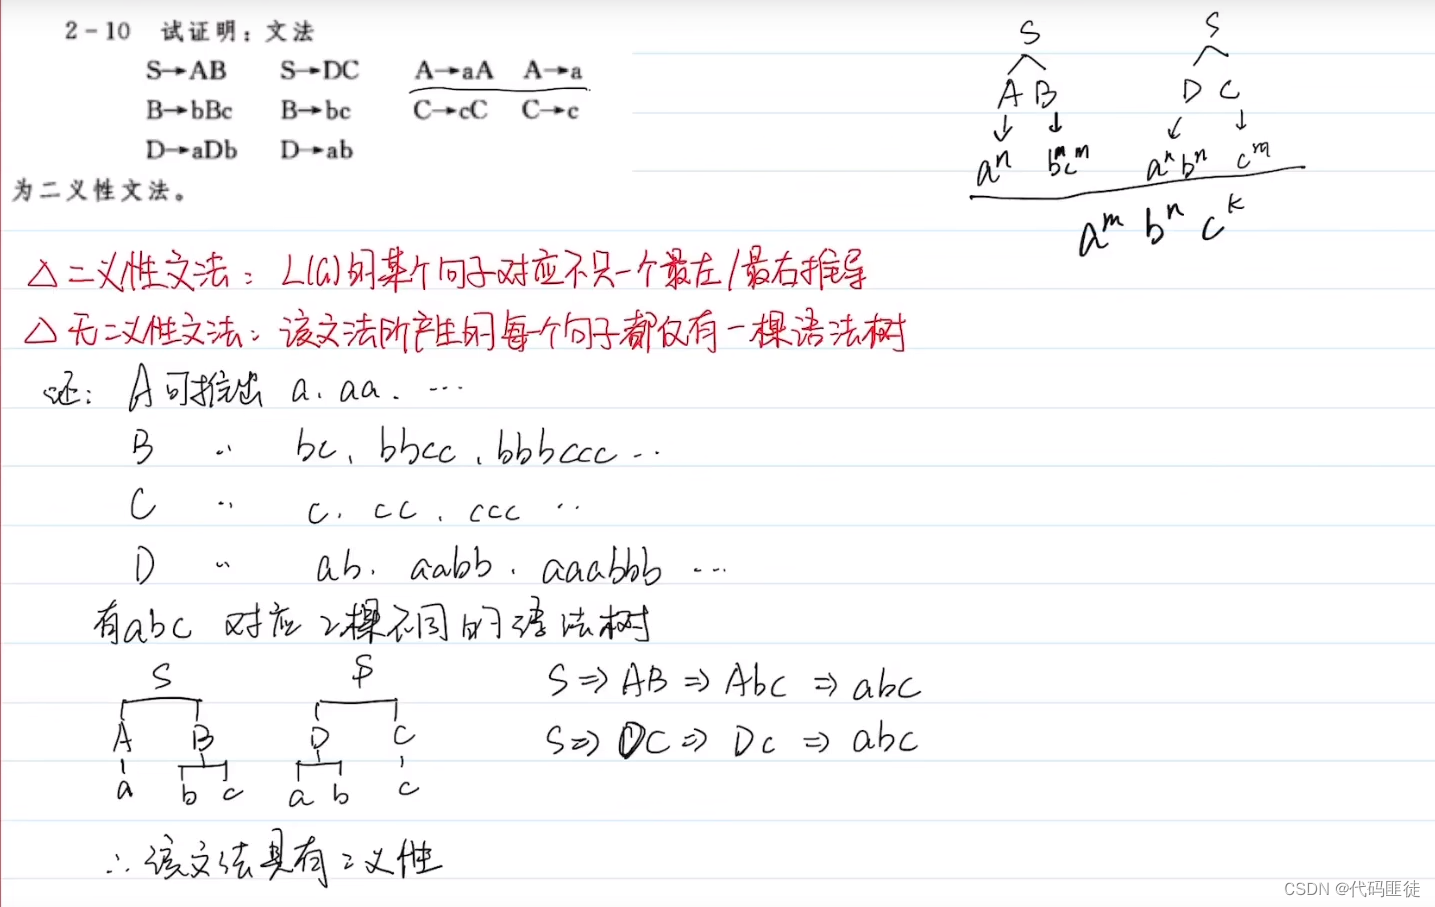 2-10 试证明：文法
S→AB S→DC A→aA A→a
B→bBc B→bc C→cC C→c
D→aDb D→ab
为二义性文法。
S S
A B D C
aⁿ bᵐcᵐ aⁿbⁿ cᵐ
aᵐ bⁿ cᵏ
△ 二义性文法：L(G)的某个句子对应不只一个最左/最右推导
△ 无二义性文法：该文法所产生的每个句子都仅有一棵语法树
证：A可推出 a、aa、…
B 〃 bc、bbcc、bbbccc…
C 〃 c、cc、ccc…
D 〃 ab、aabb、aaabbb…
有abc 对应2棵不同的语法树
S S S⇒AB⇒Abc⇒abc
A B D C S⇒DC⇒Dc⇒abc
a b c a b c
∴该文法具有二义性
CSDN @代码匪徒